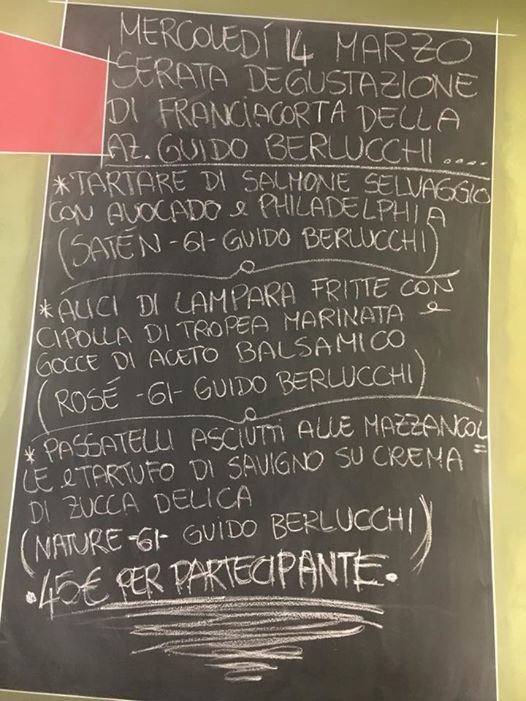 MERCOLEDÍ 14 MARZO
SERATA DEGUSTAZIONE
DI FRANCIACORTA DELLA
AZ. GUIDO BERLUCCHI....
*TARTARE DI SALMONE SELVAGGIO
CON AVOCADO e PHILADELPHIA
(SATÉN -61- GUIDO BERLUCCHI)
*ALICI DI LAMPARA FRITTE CON
CIPOLLA DI TROPEA MARINATA e
GOCCE DI ACETO BALSAMICO
(ROSÉ -61- GUIDO BERLUCCHI)
*PASSATELLI ASCIUTTI ALLE MAZZANCOL=
LE e TARTUFO DI SAVIGNO SU CREMA
DI ZUCCA DELICA
(NATURE -61- GUIDO BERLUCCHI)
.45€ PER PARTECIPANTE.